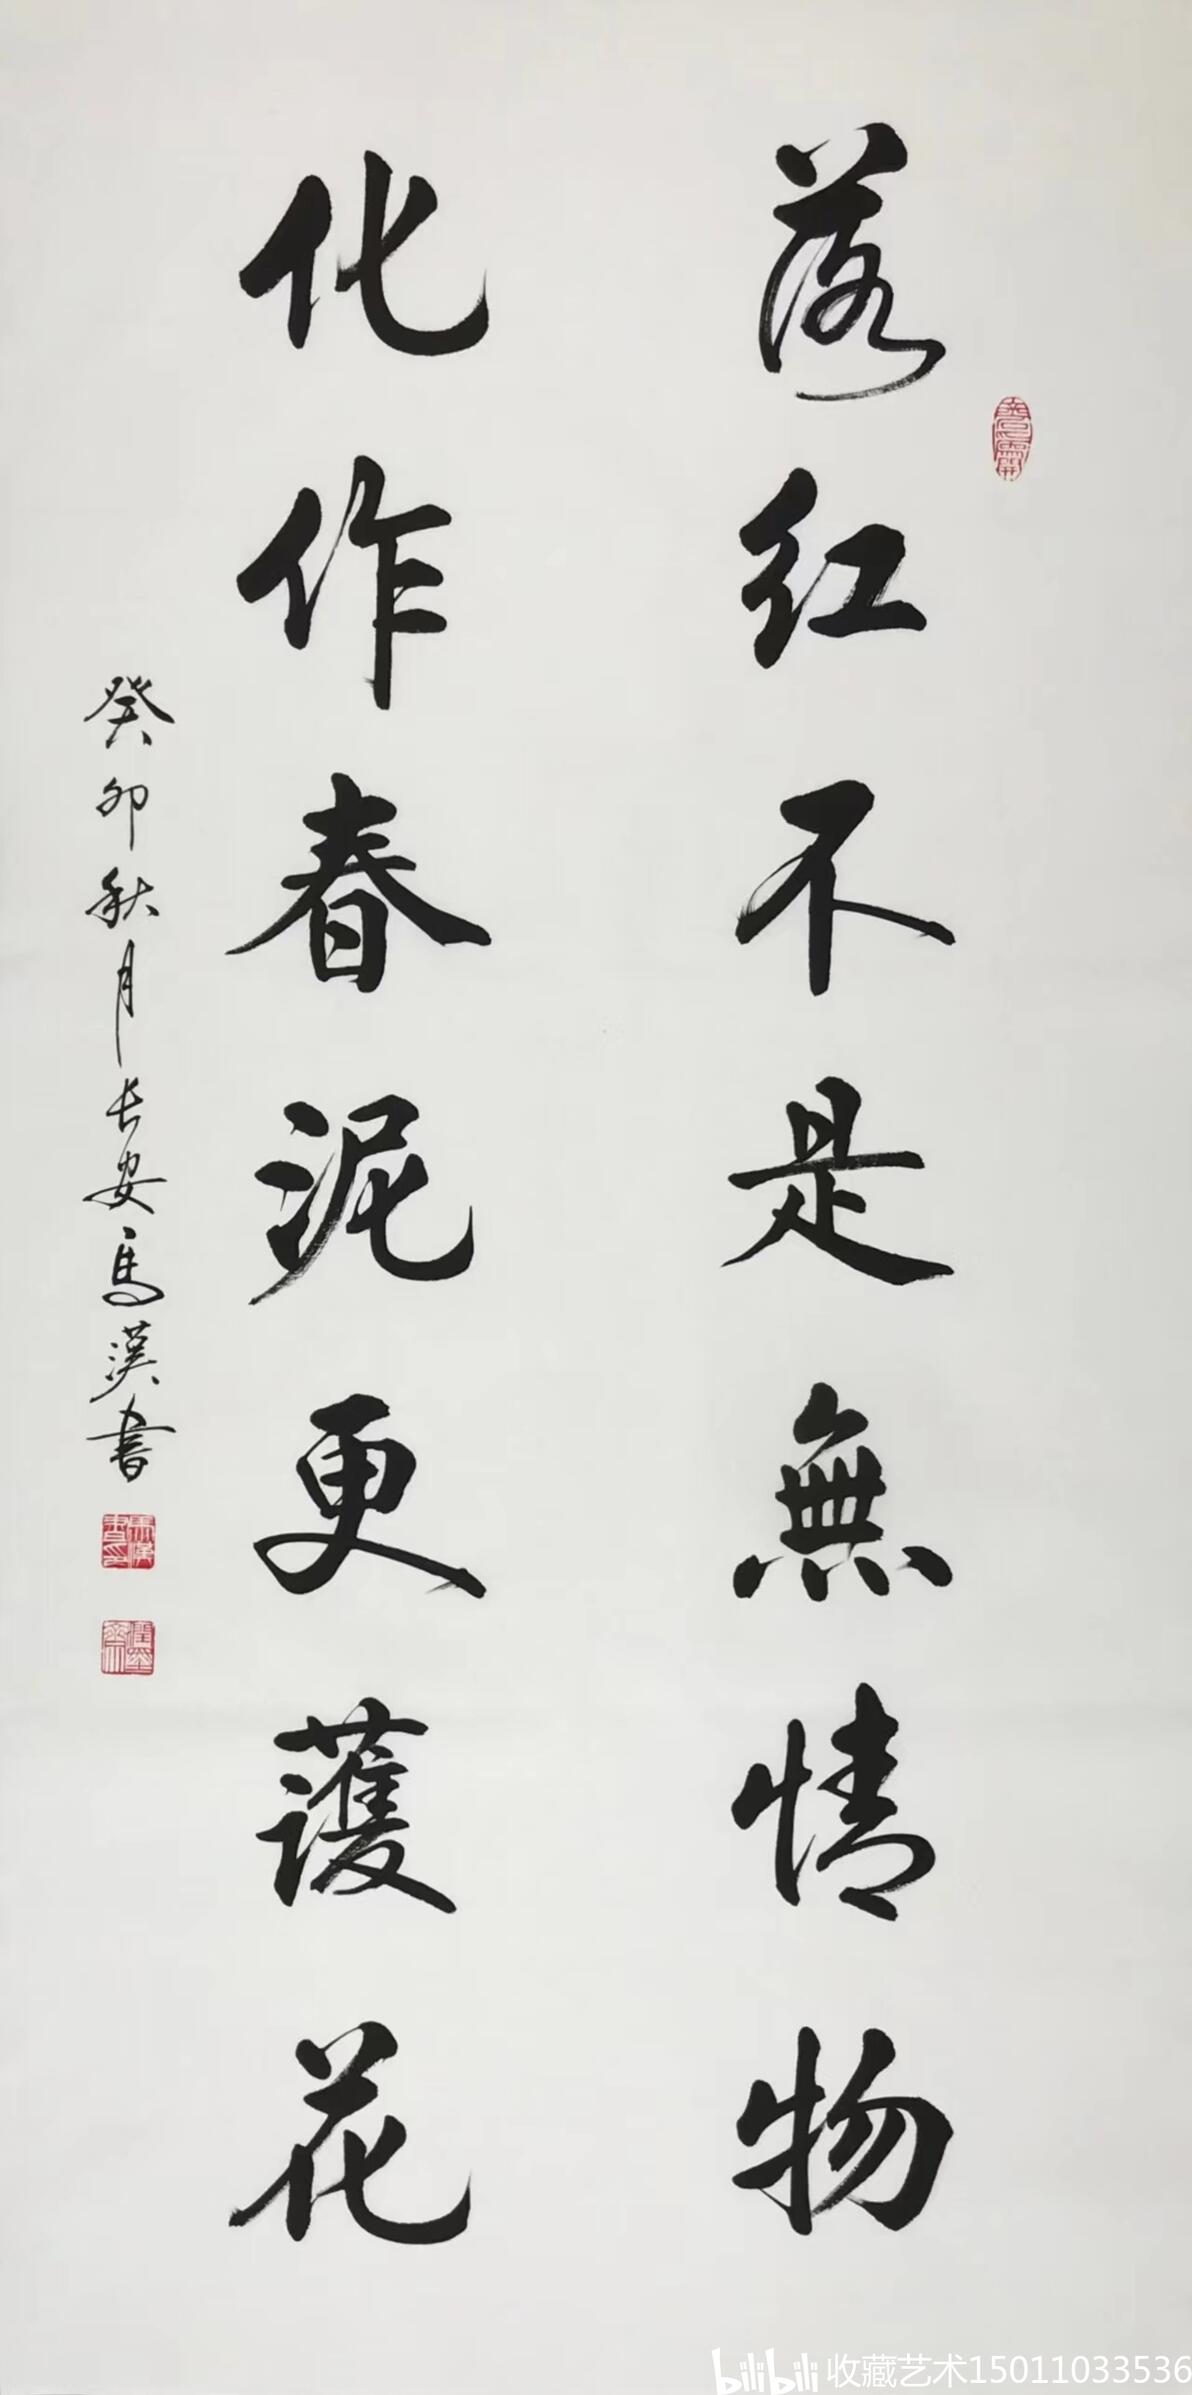 落红不是無情物
化作春泥更護花
癸卯秋月长安馬漢書
bilibili 收藏艺术15011033536